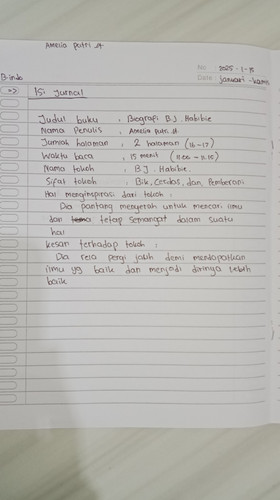 Amelia Putri A
No. 2025 - 1 -
B.indo
Date januari - kamis
Isi Jurnal
Judul buku : Biografi B.J. Habibie
Nama Penulis : Amelia Putri A
Jumlah halaman : 2 halaman (16-17)
Waktu baca : 15 menit (11.00 - 11.15)
Nama tokoh : B.J. Habibie.
Sifat tokoh : Bik, Cerdas, dan Pemberani
Hal menginspirasi dari tokoh :
Dia pantang menyerah untuk mencari ilmu
dan tetap semangat dalam suatu
hal
kesan terhadap tokoh :
Dia rela pergi jauh demi mendapatkan
ilmu yg baik dan menjadi dirinya lebih
baik